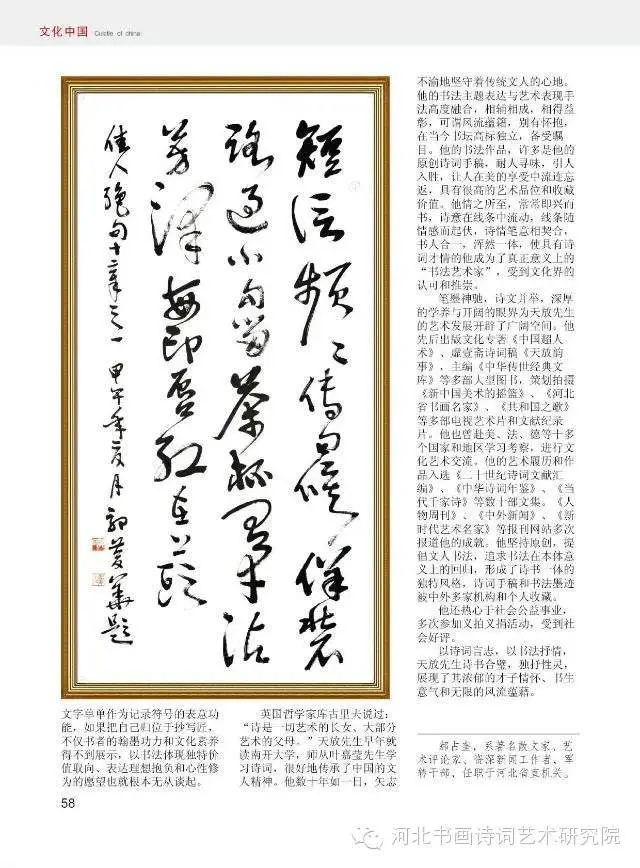 文化中国 Cuctle of china
短信频频传问候佯装
路过小勾留茶杯沾
芳泽每印唇红在上头
佳人绝句十章之一 甲午年夏月 题
文字单单作为记录符号的表意功
能,如果把自己归位于抄写匠,
不仅书者的翰墨功力和文化素养
得不到展示,以书法体现独特价
值取向、表达理想抱负和心性修
为的愿望也就根本无从谈起。
英国哲学家库古里夫说过:
“诗是一切艺术的长女、大部分
艺术的父母。”天放先生早年就
读南开大学,师从叶嘉莹先生学
习诗词,很好地传承了中国的文
人精神。他数十年如一日,矢志
不渝地坚守着传统文人的心地。
他的书法主题表达与艺术表现手
法高度融合,相辅相成,相得益
彰,可谓风流蕴籍,别有怀抱,
在当今书坛高标独立,备受瞩
目。他的书法作品,许多是他的
原创诗词手稿,耐人寻味,引人
入胜,让人在美的享受中流连忘
返,具有很高的艺术品位和收藏
价值。他情之所至,常常即兴而
书,诗意在线条中流动,线条随
情感而起伏,诗情笔意相契合,
书人合一,浑然一体,使具有诗
词才情的他成为了真正意义上的
“书法艺术家”,受到文化界的
认可和推崇。
笔墨神驰,诗文并举,深厚
的学养与开阔的眼界为天放先生
的艺术发展开辟了广阔空间。他
先后出版文化专著《中国超人
术》、虚壶斋诗词稿《天放韵
事》,主编《中华传世经典文
库》等多部大型图书,策划拍摄
《新中国美术的摇篮》、《河北
省书画名家》、《共和国之歌》
等多部电视艺术片和文献纪录
片。他也曾赴美、法、德等十多
个国家和地区学习考察,进行文
化艺术交流。他的艺术履历和作
品入选《二十世纪诗词文献汇
编》、《中华诗词年鉴》、《当
代千家诗》等数十部文集。《人
物周刊》、《中外新闻》、《新
时代艺术名家》等报刊网站多次
报道他的成就。他坚持原创,提
倡文人书法,追求书法在本体意
义上的回归,形成了诗书一体的
独特风格,诗词手稿和书法墨迹
被中外多家机构和个人收藏。
他还热心于社会公益事业,
多次参加义拍义捐活动,受到社
会好评。
以诗词言志,以书法抒情,
天放先生诗书合璧,独抒性灵,
展现了其浓郁的才子情怀、书生
意气和无限的风流蕴藉。
郑占奎,系著名散文家、艺
术评论家、资深新闻工作者、军
转干部,任职于河北省直机关。
58
河北书画诗词艺术研究院